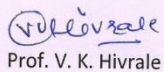 VKHivrale
Prof. V. K. Hivrale